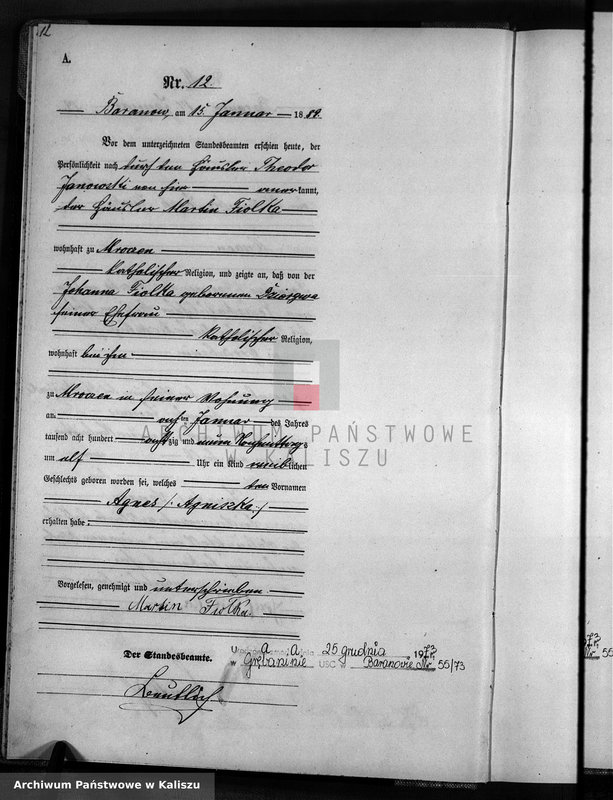 12
A.
Nr. 12.
Baranow, am 15. Januar 1889.
Vor dem unterzeichneten Standesbeamten erschien heute, der
Persönlichkeit nach durch den Häusler Theodor
Janowski von hier anerkannt,
der Häusler Martin Fiolka
wohnhaft zu Mroczen
katholischer Religion, und zeigte an, daß von der
Johanna Fiolka geborenen Dziergwa
seiner Ehefrau
katholischer Religion,
wohnhaft bei ihm
zu Mroczen in seiner Wohnung
am acht ten Januar des Jahres
tausend acht hundert achtzig und neun Nachmittags
um elf Uhr ein Kind weiblichen
Geschlechts geboren worden sei, welches den Vornamen
Agnes /: Agniszka :/
erhalten habe
Vorgelesen, genehmigt und unterschrieben
Martin Fiolka.
Der Standesbeamte.
A 25 grudnia 1973
w Grębaninie USC w Baranowie Nr 55/73
ARCHIWUM PAŃSTWOWE
W KALISZU
55
Archiwum Państwowe w Kaliszu